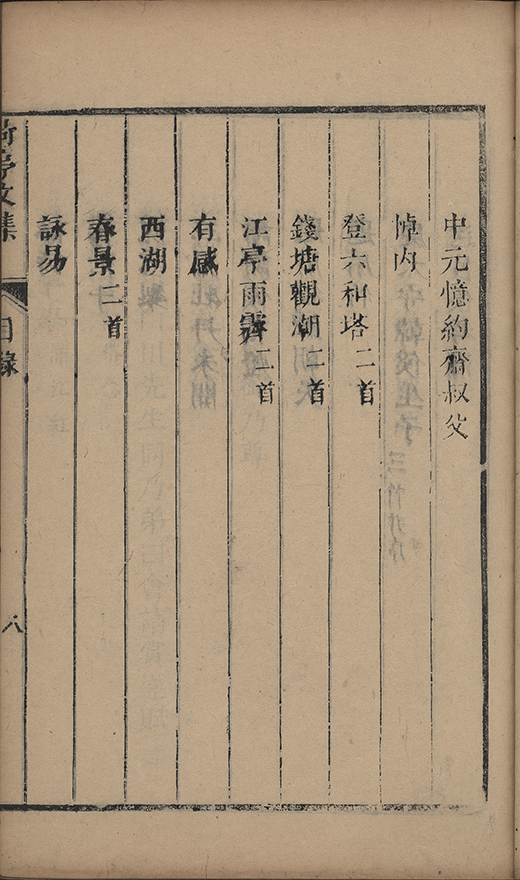 中元憶約齋叔父
悼内
登六和塔二首
錢塘觀潮二首
江亭雨霽二首
有感
西湖
春景二首
詠易
亭文集
目錄
八